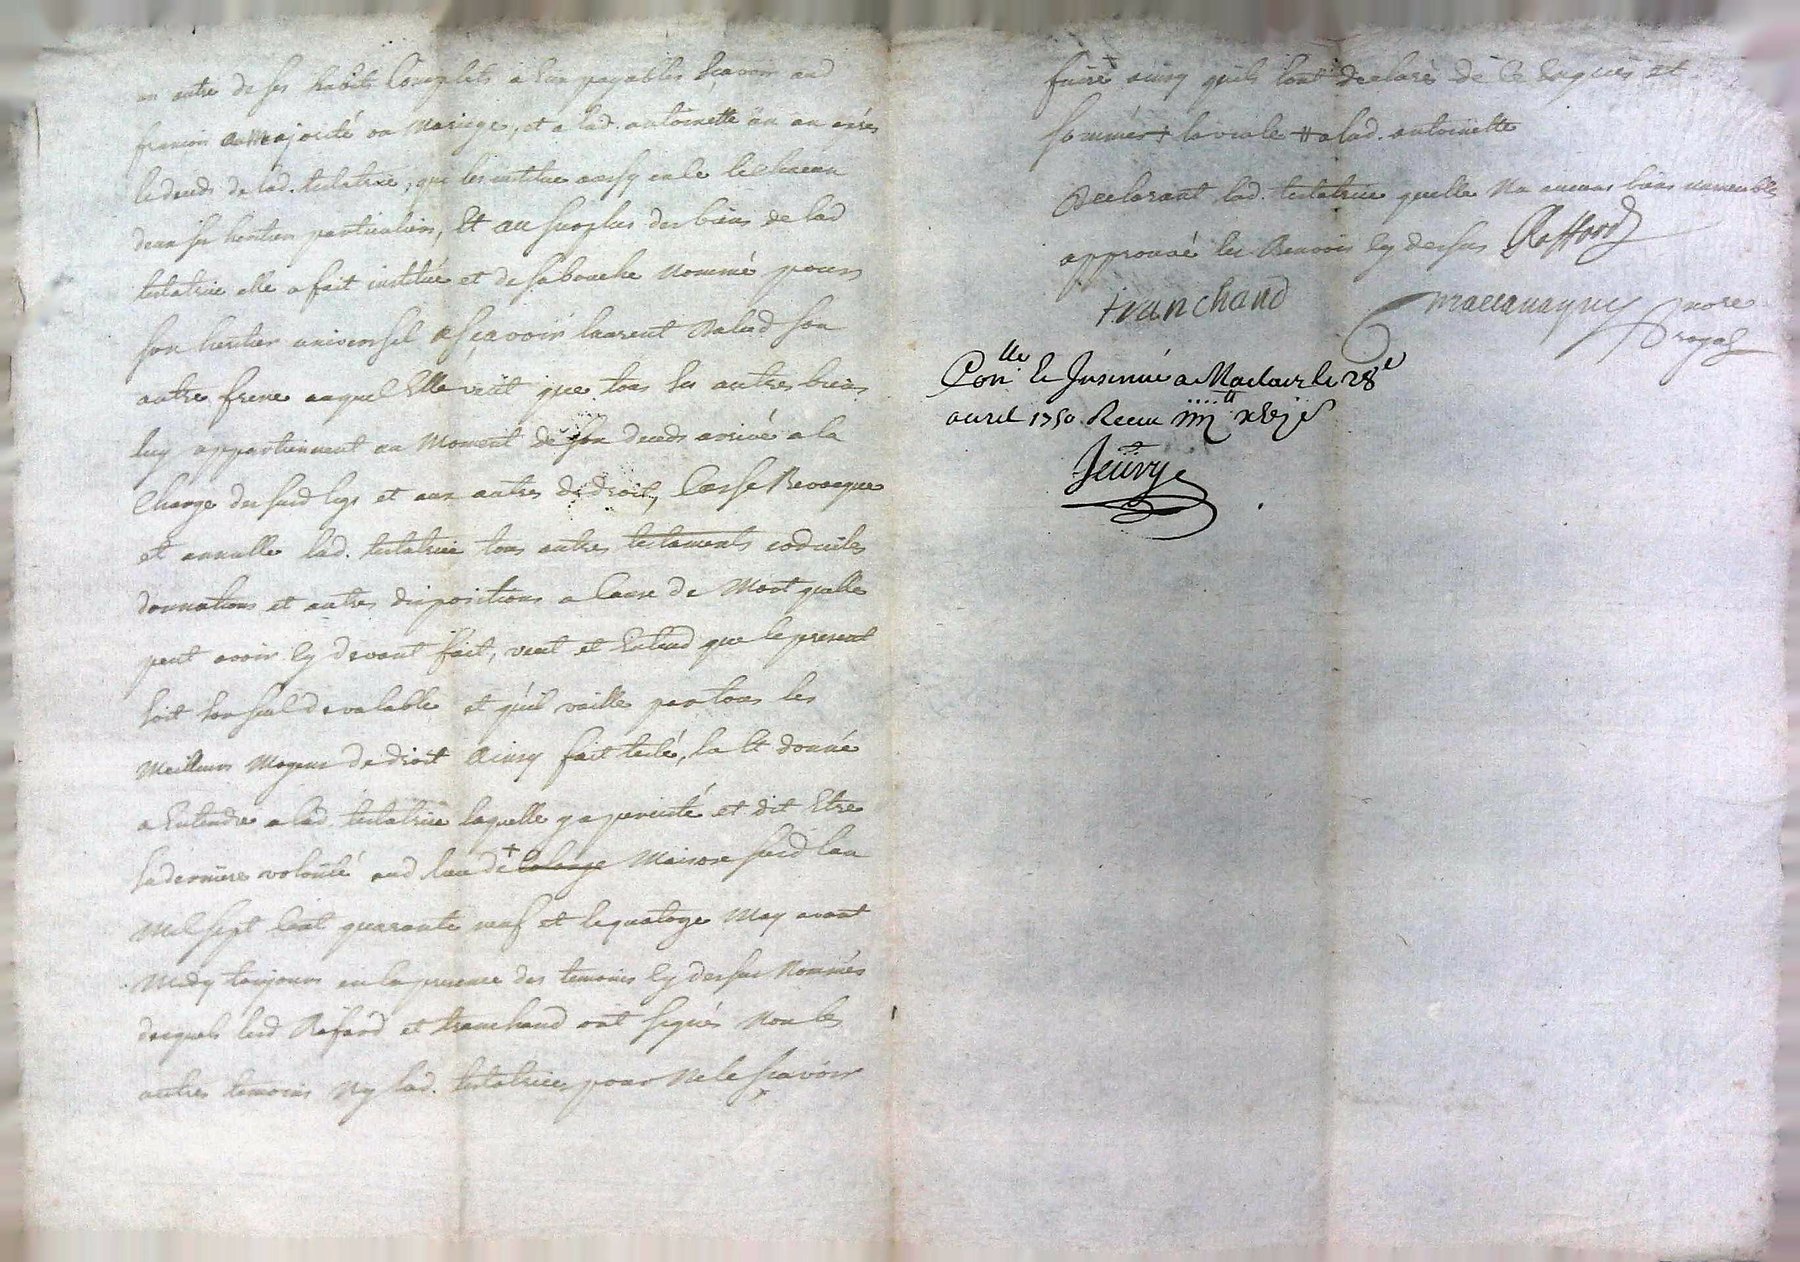 un autre de ses habits Complets a Eux payables Sçavoir aud
françois a Majorité ou Mariage, et a lad. antoinette un an après
le deceds de lad. testatrice, que les institue ainsy en ce le chacun
deux ses heritiers particuliers, Et au surplus des biens de lad
testatrice elle a fait institué et de sa bouche Nommé pour
son heritier universel asçavoir laurent son
autre frere auquel Elle veüt que tous ses autres biens
luy appartiennent au Moment de son deceds arrivé a la
Charge du susd legs et aux autres de droit, Casse Revocque
et annulle lad. testatrice tous autres testaments codiciles
donnations et autres dispositions a Cause de Mort quelle
peut avoir Cy devant fait, veut et Entend que le present
soit son seul devalable et qu'il vaille par tous les
Meilleurs Moyens de droit Ainsy fait testé, lu Et donné
a Entendre a lad. testatrice laquelle y a persisté et dit Etre
sa derniere volonté aud lieu de + Maison susd l'an
Mil sept Cent quarante neuf et le quatorze May avant
Midy toujours en la presence des temoins Cy dessus Nommés
desquels lesd Rafard et tranchand ont signés Non les
autres temoins Ny lad. testatrice pour Ne le sçavoir
faire ainsy qu'ils l'ont declaré de Ce Enquis et
sommés + # a lad. antoinette
Declarant lad. testatrice quelle Na aucuns biens immeubles
approuvé les Renvois Cy dessus Raffard
tranchand nore
royal
Con.lle Et Insinué a le 28e
avril 1750. Receu